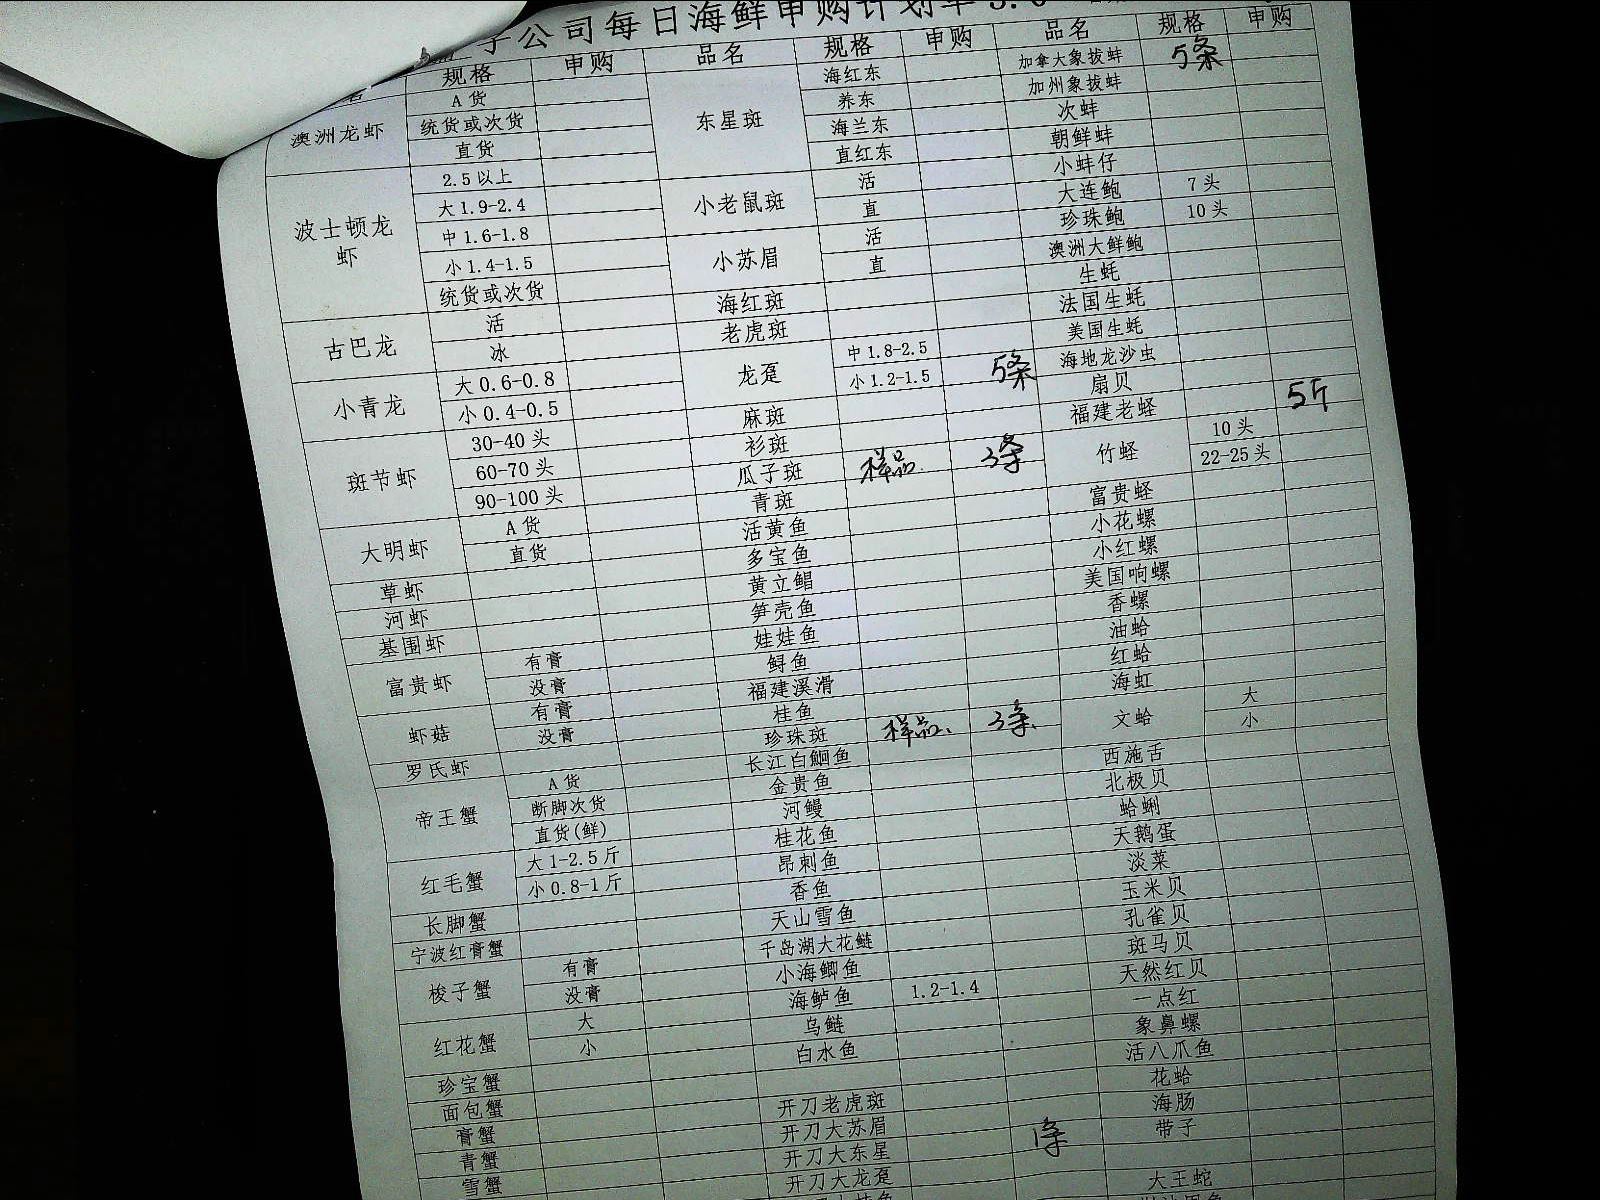 子公司每日海鲜申购计划单
规格 申购
澳洲龙虾 A货
统货或次货
直货
波士顿龙虾 2.5以上
大1.9-2.4
中1.6-1.8
小1.4-1.5
统货或次货
古巴龙 活
冰
小青龙 大0.6-0.8
小0.4-0.5
斑节虾 30-40头
60-70头
90-100头
大明虾 A货
直货
草虾
河虾
基围虾
富贵虾 有膏
没膏
虾菇 有膏
没膏
罗氏虾
帝王蟹 A货
断脚次货
直货(鲜)
红毛蟹 大1-2.5斤
小0.8-1斤
长脚蟹
宁波红膏蟹
梭子蟹 有膏
没膏
红花蟹 大
小
珍宝蟹
面包蟹
膏蟹
青蟹
雪蟹
品名 规格 申购
东星斑 海红东
养东
海兰东
直红东
小老鼠斑 活
直
小苏眉 活
直
海红斑
老虎斑
龙趸 中1.8-2.5
小1.2-1.5 5条
麻斑
衫斑
瓜子斑 样品 3条
青斑
活黄鱼
多宝鱼
黄立鲳
笋壳鱼
娃娃鱼
鲟鱼
福建溪滑
桂鱼
珍珠斑 样品、 3条
长江白鮰鱼
金贵鱼
河鳗
桂花鱼
昂刺鱼
香鱼
天山雪鱼
千岛湖大花鲢
小海鲫鱼
海鲈鱼 1.2-1.4
乌鲢
白水鱼
开刀老虎斑
开刀大苏眉
开刀大东星 1条
开刀大龙趸
品名 规格 申购
加拿大象拔蚌 5条
加州象拔蚌
次蚌
朝鲜蚌
小蚌仔
大连鲍 7头
珍珠鲍 10头
澳洲大鲜鲍
生蚝
法国生蚝
美国生蚝
海地龙沙虫
扇贝
福建老蛏 5斤
竹蛏 10头
22-25头
富贵蛏
小花螺
小红螺
美国响螺
香螺
油蛤
红蛤
海虹
文蛤 大
小
西施舌
北极贝
蛤蜊
天鹅蛋
淡菜
玉米贝
孔雀贝
斑马贝
天然红贝
一点红
象鼻螺
活八爪鱼
花蛤
海肠
带子
大王蛇